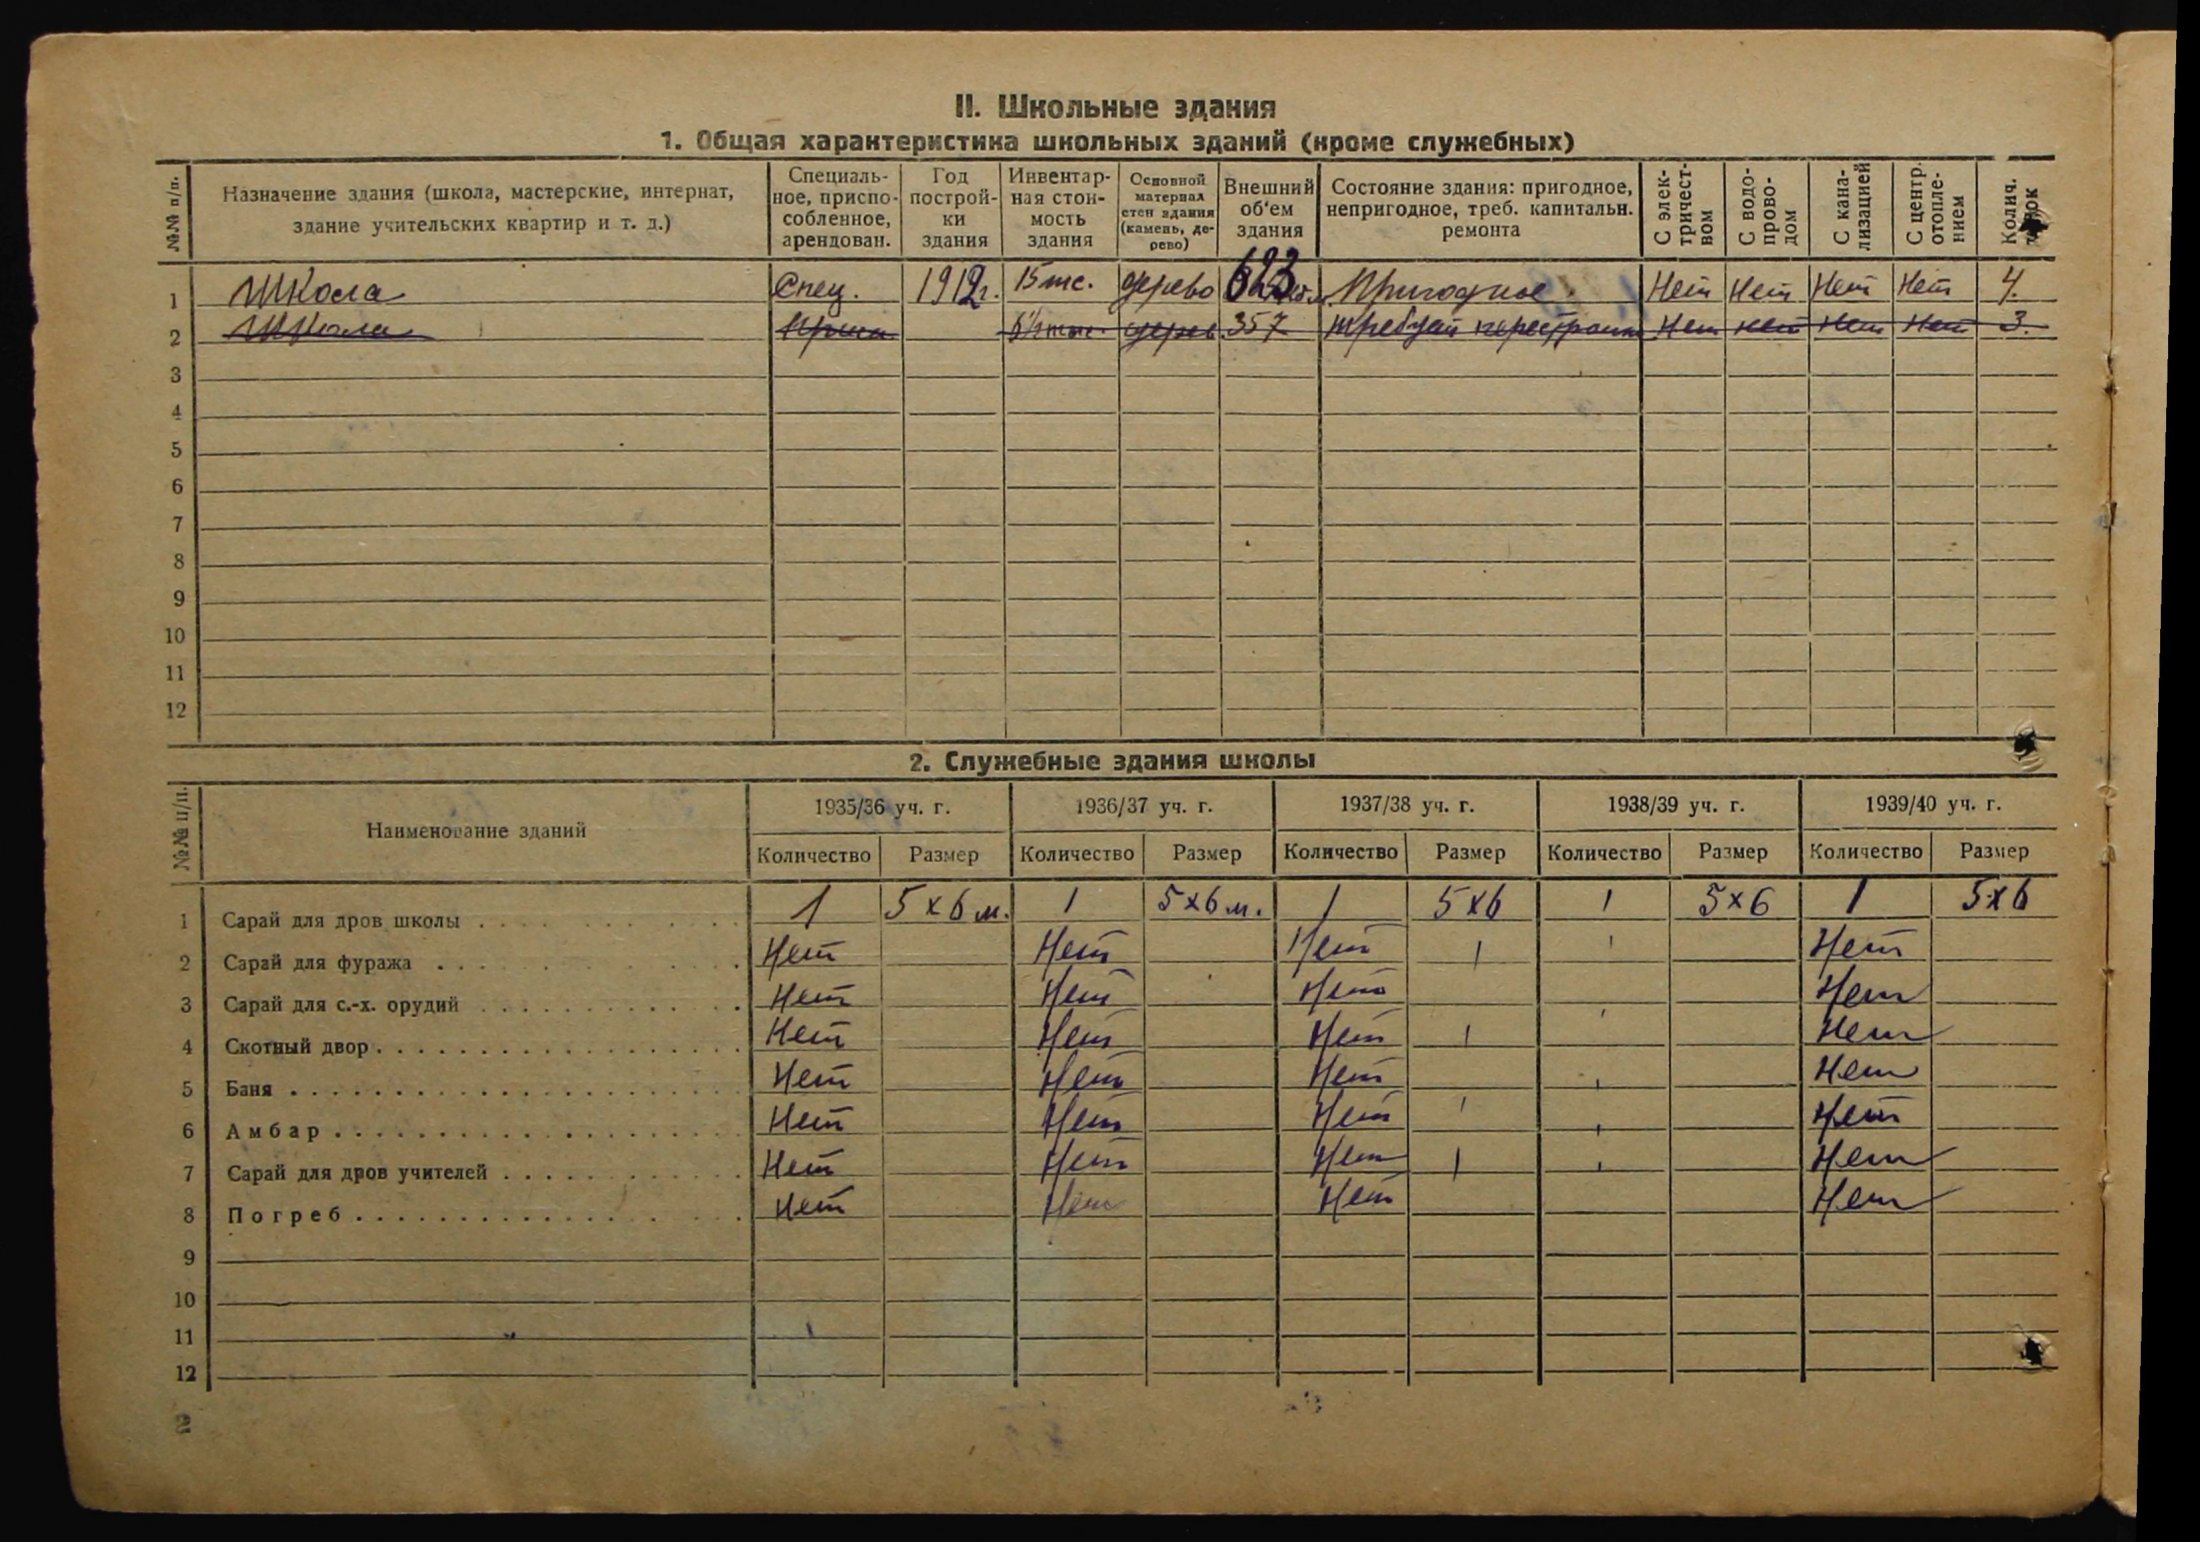 II. Школьные здания
1. Общая характеристика школьных зданий (кроме служебных)
№№ п/п. | Назначение здания (школа, мастерские, интернат, здание учительских квартир и т. д.) | Специаль-ное, приспо-собленное, арендован. | Год построй-ки здания | Инвентар-ная стои-мость здания | Основной материал стен здания (камень, де-рево) | Внешний об'ем здания | Состояние здания: пригодное, непригодное, треб. капитальн. ремонта | С элек-тричест-вом | С водо-прово-дом | С кана-лизацией | С центр. отопле-нием | Колич.
1 Школа Спец. 1912г. 15 тс. дерево 623 Пригодное Нет Нет Нет Нет 4.
2 Школа 357 Нет нет Нет Нет 3.
3
4
5
6
7
8
9
10
11
12
2. Служебные здания школы
№№ п/п. | Наименование зданий | 1935/36 уч. г. | 1936/37 уч. г. | 1937/38 уч. г. | 1938/39 уч. г. | 1939/40 уч. г.
Количество Размер Количество Размер Количество Размер Количество Размер Количество Размер
1 Сарай для дров школы 1 5х6 м. 1 5х6 м. 1 5х6 1 5х6 1 5х6
2 Сарай для фуража Нет Нет Нет Нет
3 Сарай для с.-х. орудий Нет Нет Нет Нет
4 Скотный двор Нет Нет Нет Нет
5 Баня Нет Нет Нет Нет
6 Амбар Нет Нет Нет Нет
7 Сарай для дров учителей Нет Нет Нет Нет
8 Погреб Нет Нет Нет Нет
9
10
11
12
2